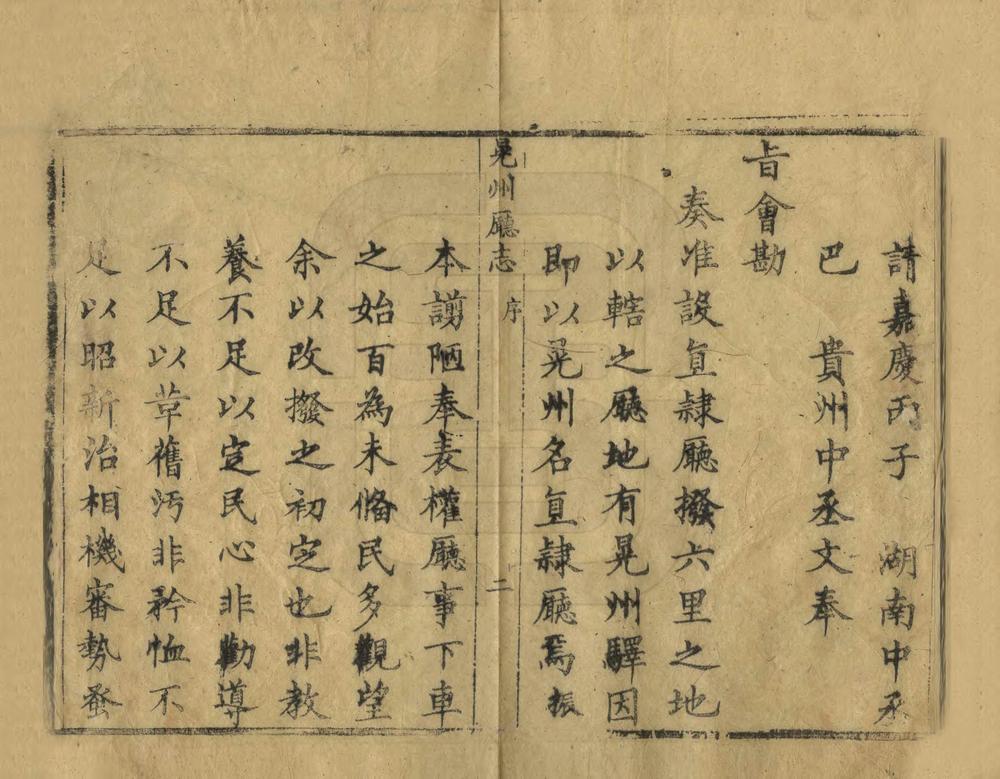 請嘉慶丙子　湖南中丞
巴　貴州中丞文奉
旨會勘
奏准設直隸廳撥六里之地
以轄之廳地有晃州驛因
即以晃州名直隸廳焉振
晃州廳志　序　二
本謭陋奉委權廳事下車
之始百為未俻民多觀望
余以改撥之初定也非教
養不足以定民心非勸導
不足以革舊汚非矜恤不
足以昭新治相機審勢蚤